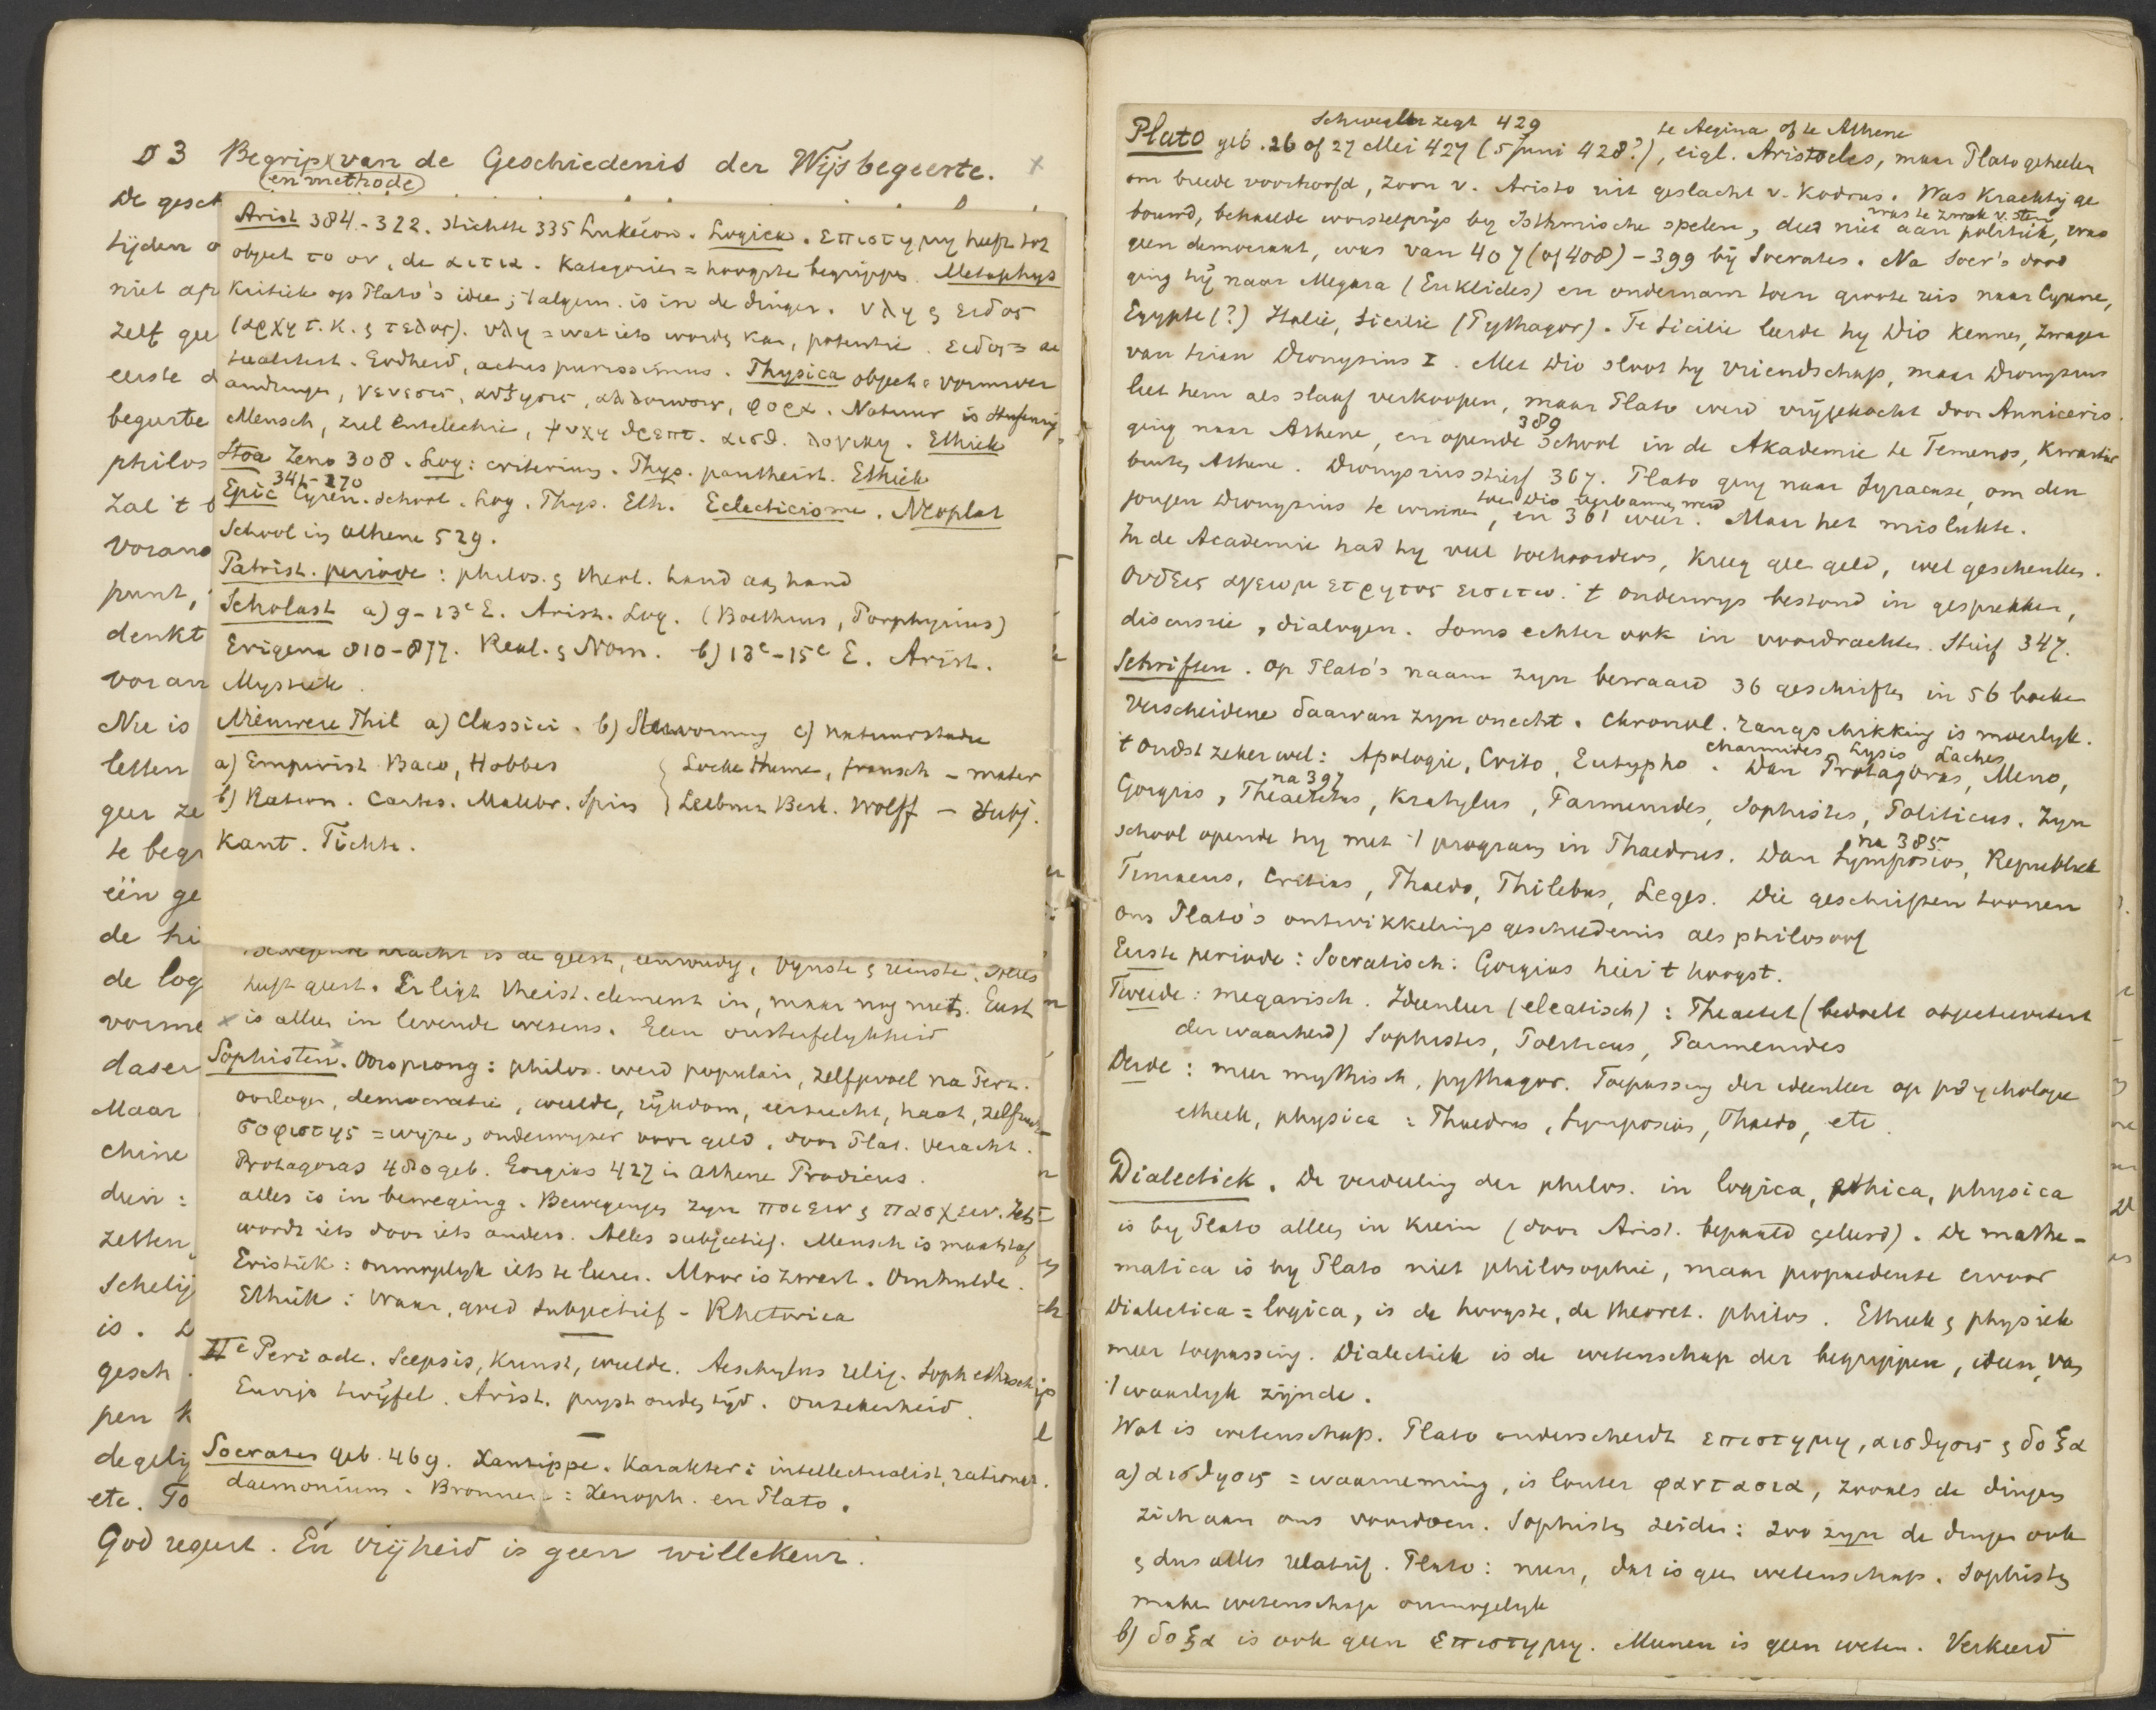 § 3 Begrip van de Geschiedenis der Wijsbegeerte. x
(en methode)
De gesch
tijden o
niet af
zelf gee
eerste d
begeerte
philos
zal 't b
voran
punt,
denkt
voran
Nu is
letten
geer ze
te begr
één ge
de hi
de log
vorme
daser
Maar
chine
deir :
zetten,
Schelij
is. D
gesch
pen k
degelij
etc. To
God regeert. En vrijheid is geen willekeur.
Arist 384-322. Stichtte 335 Lukeion. Logica. Επιστημη heeft tot
object το ον, de αιτια. Kategorien = hoogste begrippen. Metaphys
Kritiek op Plato's idee; 't algem. is in de dingen. υλη & ειδος
(αρχη τ. κ. & τελος). υλη = wat iets worden kan, potentie. ειδος = ac
tualiteit. Godheid, actus purissimus. Physica object = vormver
anderingen, γενεσις, αυξησις, αλλοιωσις, φορα. Natuur is
Mensch, ziel entelechie, ψυχη θρεπτ. αισθ. λογικη. Ethiek
Stoa Zeno 308. Log: criterium. Phys. pantheist. Ethiek
341-270
Epic Cyren. school. Log. Phys. Eth. Eclecticisme. Neoplat
School in Athene 529.
Patrist. periode: philos. & theol. hand aan hand
Scholast a) 9-13e E. Arist. Log. (Boethius, Porphyrius)
Erigena 810-877. Real. & Nom. b) 13e-15e E. Arist.
Mystiek.
Nieuwere Phil a) Classici. b) Hervorming c) natuurstudie
a) Empirist Baco, Hobbes { Locke Hume, fransch - mater
b) Ration. Cartes. Malebr. Spin { Leibniz Berk. Wolff - subj.
Kant. Fichte.
bewegende kracht is de geest, eenvoudig, fijnste & reinste.
heeft geest. Er ligt theist. element in, maar nog niets. Geest
x is alles in levende wesens. Geen onsterfelijkheid
Sophisten. Oorsprong: philos. werd populair, zelfgevoel na Perz.
oorlogen, democratie, weelde, rijkdom, eerzucht, haat,
σοφιστης = wijze, onderwijzer voor geld, door Plat. veracht.
Protagoras 480 geb. Gorgias 427 in Athene Prodicus.
alles is in beweging. Bewegingen zijn ποιειν & πασχειν. Iets
wordt iets door iets anders. Alles subjectief. Mensch is maatstaf
Eristiek: onmogelijk iets te leeren. Maar is zwart. Omkeelde.
Ethiek: waar, goed subjectief - Rhetorica
IIe Periode. Scepsis, kunst, weelde. Aeschylus relig. Soph ethisch
Eurip twijfel. Arist. prijst ouden tijd. Onzekerheid.
Socrates geb. 469. Xantippe. Karakter: intellectualist, rationeel.
daemonium. Bronnen: Xenoph. en Plato.
Schwegler zegt 429 te Aegina of te Athene
Plato geb. 26 of 27 Mei 427 (5 Juni 428?), eigl. Aristocles, maar Plato geheeten
om breede voorhoofd, zoon v. Aristo uit geslacht v. Kodrus. Was krachtig ge
bouwd, behaalde worstelprijs bij Isthmische spelen, deed niet aan politiek, was
was te zwak v. stem
geen democraat, was van 407 (of 408) - 399 bij Socrates. Na Socr's dood
ging hij naar Megara (Euklides) en ondernam toen groote reis naar Cyrene,
Egypte (?) Italie, Sicilie (Pythagor). Te Sicilie leerde hy Dio kennen, zwager
van tiran Dionysius I. Met Dio sloot hy vriendschap, maar Dionysius
liet hem als slaaf verkoopen, maar Plato werd vrijgekocht door Anniceris.
389
ging naar Athene, en opende school in de Akademie te Temenos, kwartier
buiten Athene. Dionysius stierf 367. Plato ging naar Syracuse, om den
toen Dio verbannen werd
jongen Dionysius te winnen, en 361 weer. Maar het mislukte.
In de Academie had hy veel toehoorders, kreeg geen geld, wel geschenken.
Ουδεις αγεωμετρητος εισιτω. 't Onderwys bestond in gesprekken,
discussie, dialogen. Soms echter ook in voordrachten. Stierf 347.
Schriften. Op Plato's naam zyn bewaard 36 geschriften in 56 boeken
Verscheidene daarvan zyn onecht. Chronol. rangschikking is moeilyk.
Charmides Lysis Laches
't Oudst zeker wel: Apologie, Crito, Eutypho. Dan Protagoras, Meno,
na 397
Gorgias, Theaetetus, Kratylus, Parmenides, Sophistes, Politicus. Zyn
school opende hy met 't program in Phaedrus. Dan Symposion, Republiek
na 385
Timaeus, Critias, Phaedo, Philebus, Leges. Die geschriften toonen
ons Plato's ontwikkelingsgeschiedenis als philosoof
Eerste periode: Socratisch: Gorgias hier 't hoogst.
Tweede: megarisch. Ideenleer (eleatisch): Theaetet (bedoelt objectiviteit
der waarheid) Sophistes, Politicus, Parmenides
Derde: meer mythisch, pythagor. Toepassing der ideenleer op psychologie
ethiek, physica: Phaedrus, Symposion, Phaedo, etc.
Dialectick. De verdeeling der philos. in logica, ethica, physica
is by Plato alleen in kiem (door Arist. bepaald geleerd). De mathe-
matica is by Plato niet philosophie, maar propaedeuse ervoor
Dialectica = logica, is de hoogste, de theoret. philos. Ethiek & physiek
meer toepassing. Dialectiek is de wetenschap der begrippen, ideen, van
't waarlyk zijnde.
Wat is wetenschap. Plato onderscheidt επιστημη, αισθησις & δοξα
a) αισθησις = waarneming, is louter φαντασια, zooals de dingen
zich aan ons voordoen. Sophisten zeiden: zoo zyn de dingen ook
& dus alles relatief. Plato: neen, dat is geen wetenschap. Sophisten
maken wetenschap onmogelyk
b) δοξα is ook geen επιστημη. Meenen is geen weten. Verkeerd